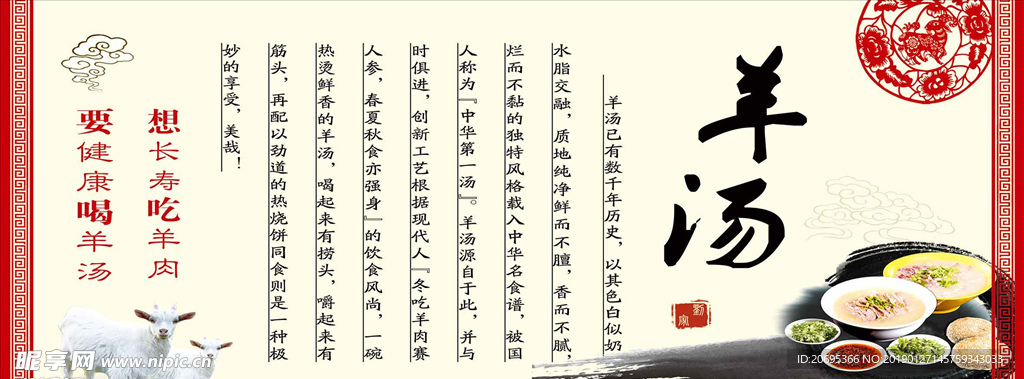 羊汤
羊汤已有数千年历史，以其色白似奶
水脂交融，质地纯净鲜而不膻，香而不腻，
烂而不黏的独特风格载入中华名食谱，被国
人称为『中华第一汤』。羊汤源自于此，并与
时俱进，创新工艺根据现代人『冬吃羊肉赛
人参，春夏秋食亦强身』的饮食风尚，一碗
热烫鲜香的羊汤，喝起来有捞头，嚼起来有
筋头，再配以劲道的热烧饼同食则是一种极
妙的享受，美哉！
想长寿吃羊肉
要健康喝羊汤
昵享网 www.nipic.cn
ID:20695366 NO:20190127145759343033